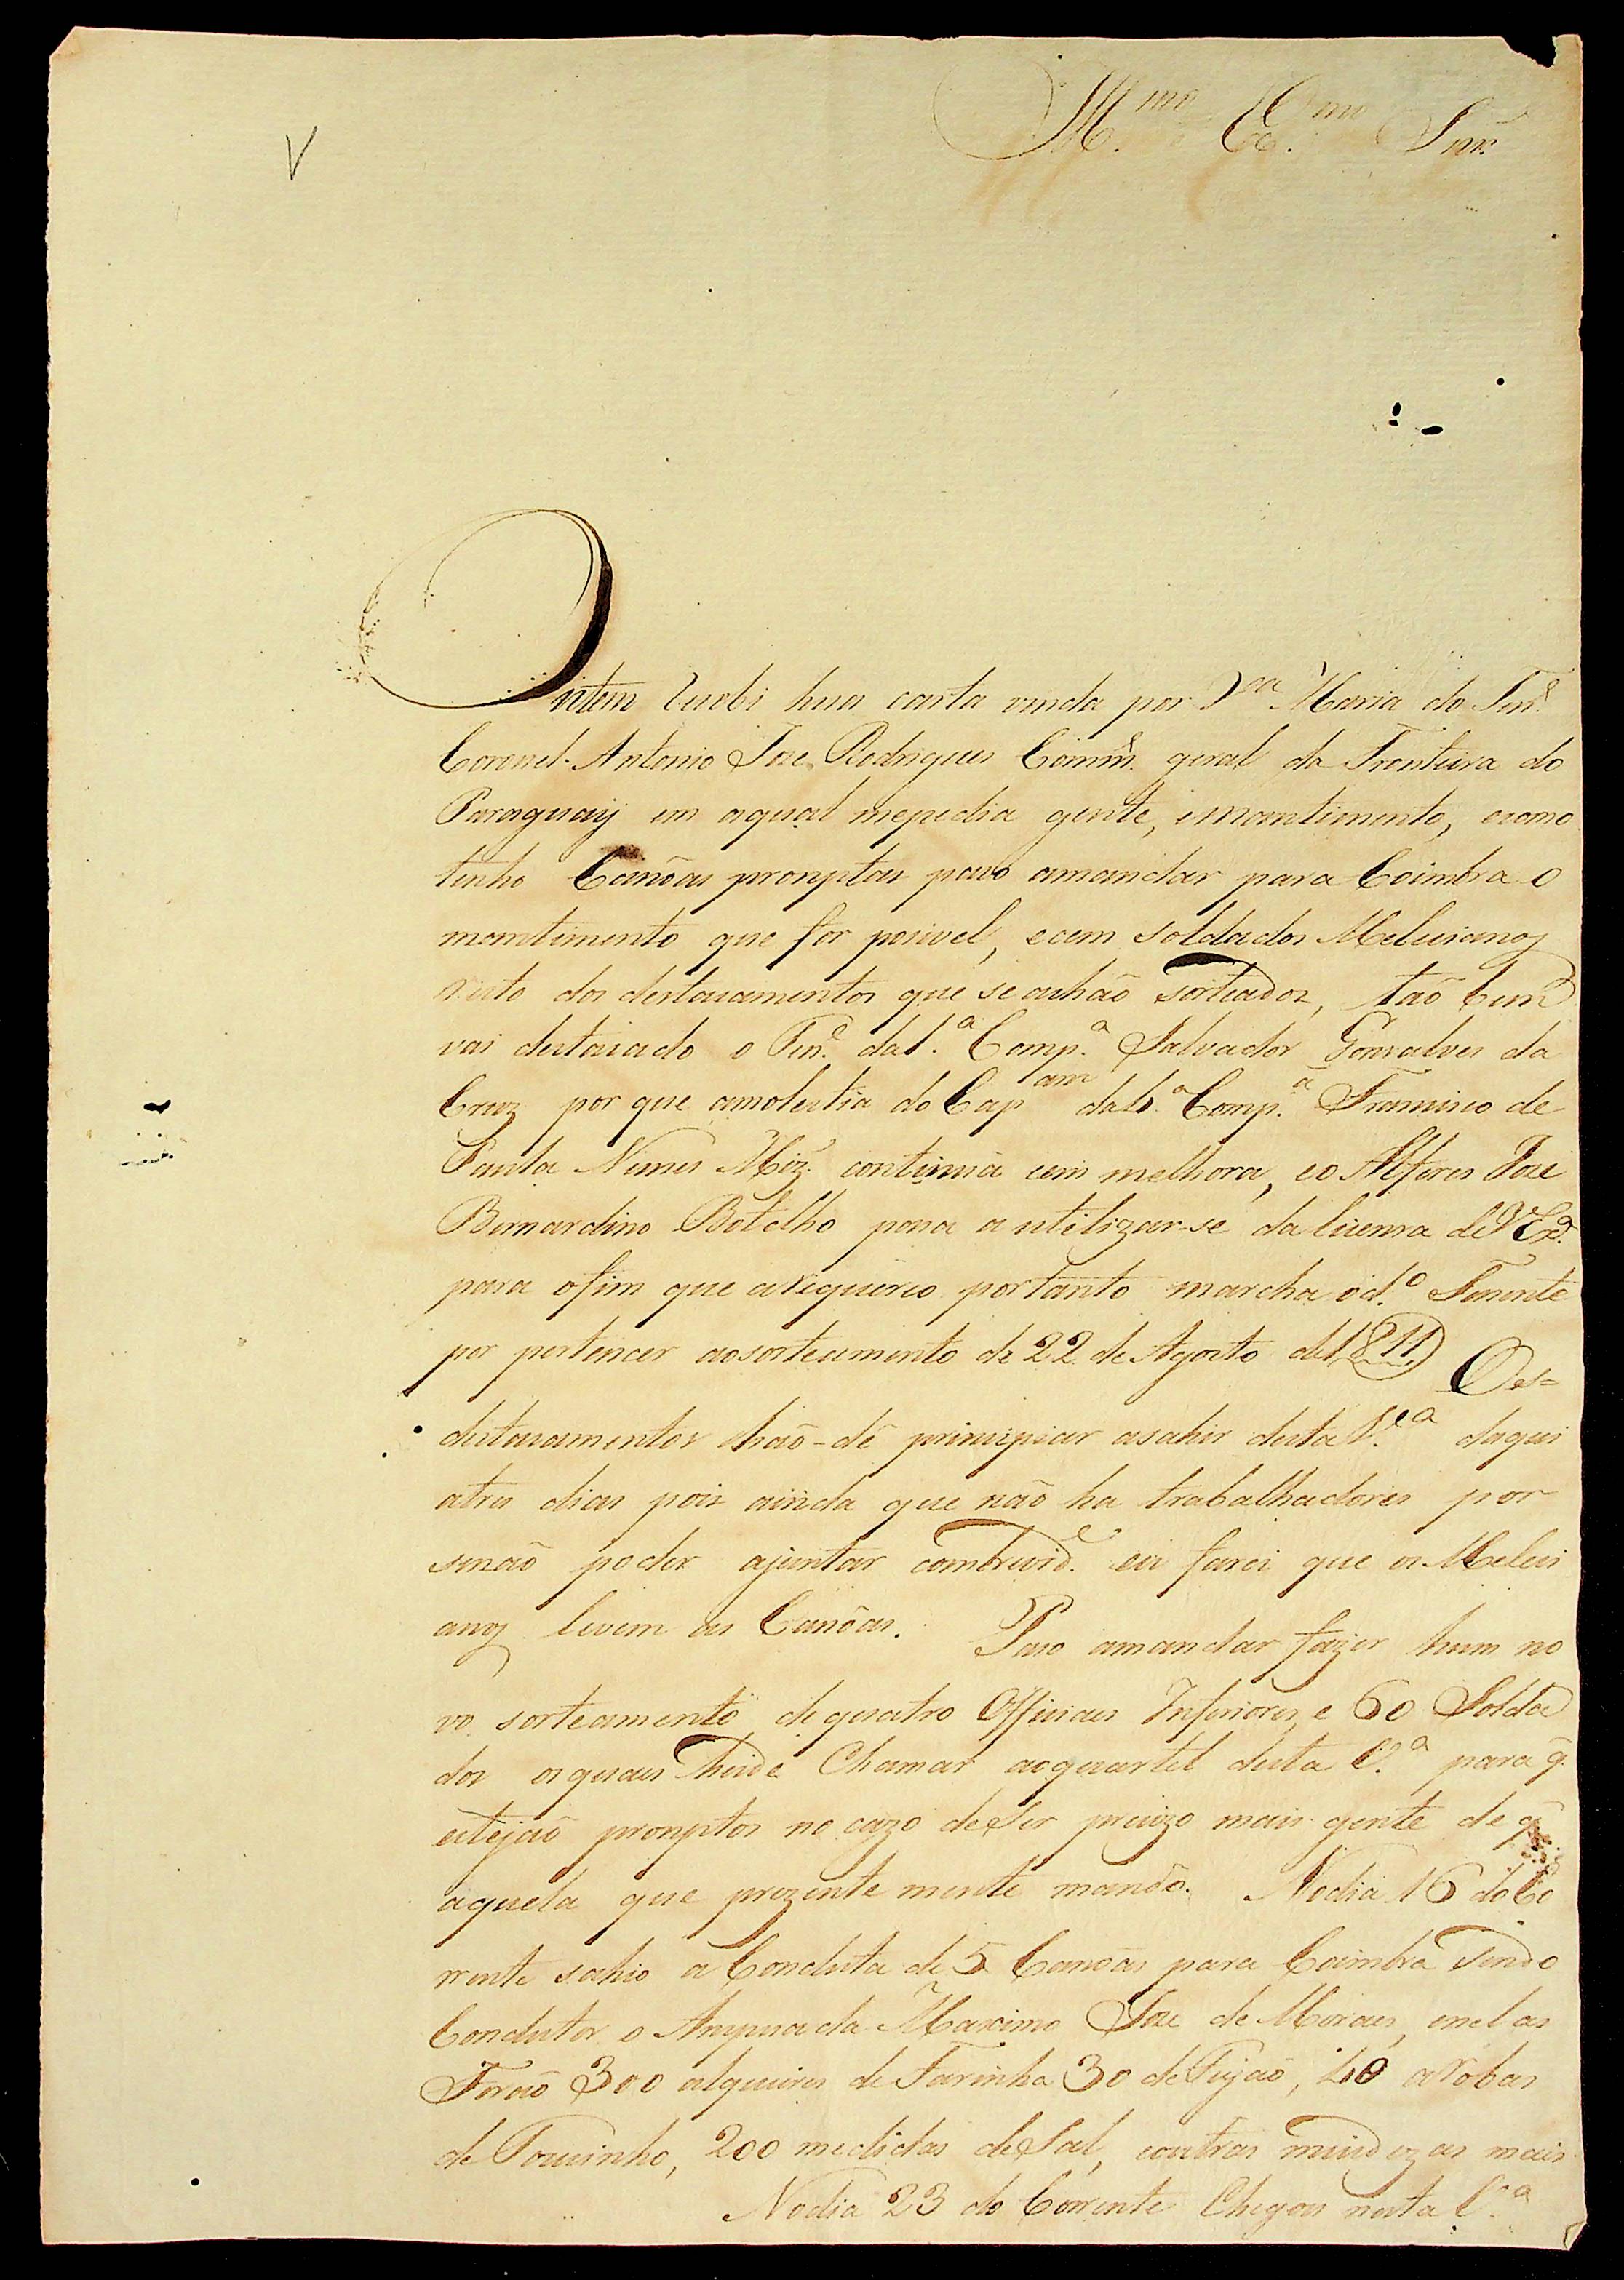 Ill.mo Ex.mo Snr.
Ontem recebi hua carta vinda por V.a Maria do Ten.e
Coronel Antonio Joze Rodrigues Comm.e geral da Fronteira do
Paraguay em aqual mepedia gente, emantimento, ecomo
tenho Canôas promptas paso amandar para Coimbra o
mantimento que for posivel, ecem soldados Melicianos
resto dos destacamentos que se achão sorteados, tão bem
vai destacado o Ten.e da 1.a Comp.a Salvador Gonsalves da
Cruz por que amolestia do Cap.am da 6.a Comp.a Francisco de
Paula Nunes Miz. continua cem melhora, eo Alferes Joze
Bernardino Botelho pasa a utilizar-se da licensa de V Ex.a
para ofim que arequereo portanto marcha o d.o Tenente
por pertencer aosorteamento de 22 de Agosto de 1811 Os =
destacamentos hão-dê principiar asahir desta V.a daqui
atres dias pois ainda que não ha trabalhadores por
senão poder ajuntar combrevid.e eu farei que os Melici
anos levem as Canôas. Paso amandar fazer hum no
vo sorteamento de quatro Officiais Inferiores e 60 Solda
dos osquais heide Chamar aoquartel desta V.a para q.
estejão promptos no cazo deser precizo mais gente de q.
aquela que prezente mente mando. Nodia 16 do Co
rrente sahio a Conduta de 5 Canôas para Coimbra sendo
Condutor o Anspesada Maximo Joze de Moraes, enelas
Forão 300 alqueires de Farinha 30 de Feijão, 40 arobas
de Toucinho, 200 medidas de Sal, eoutras miudezas mais
Nodia 23 do Corrente Chegou nesta V.a